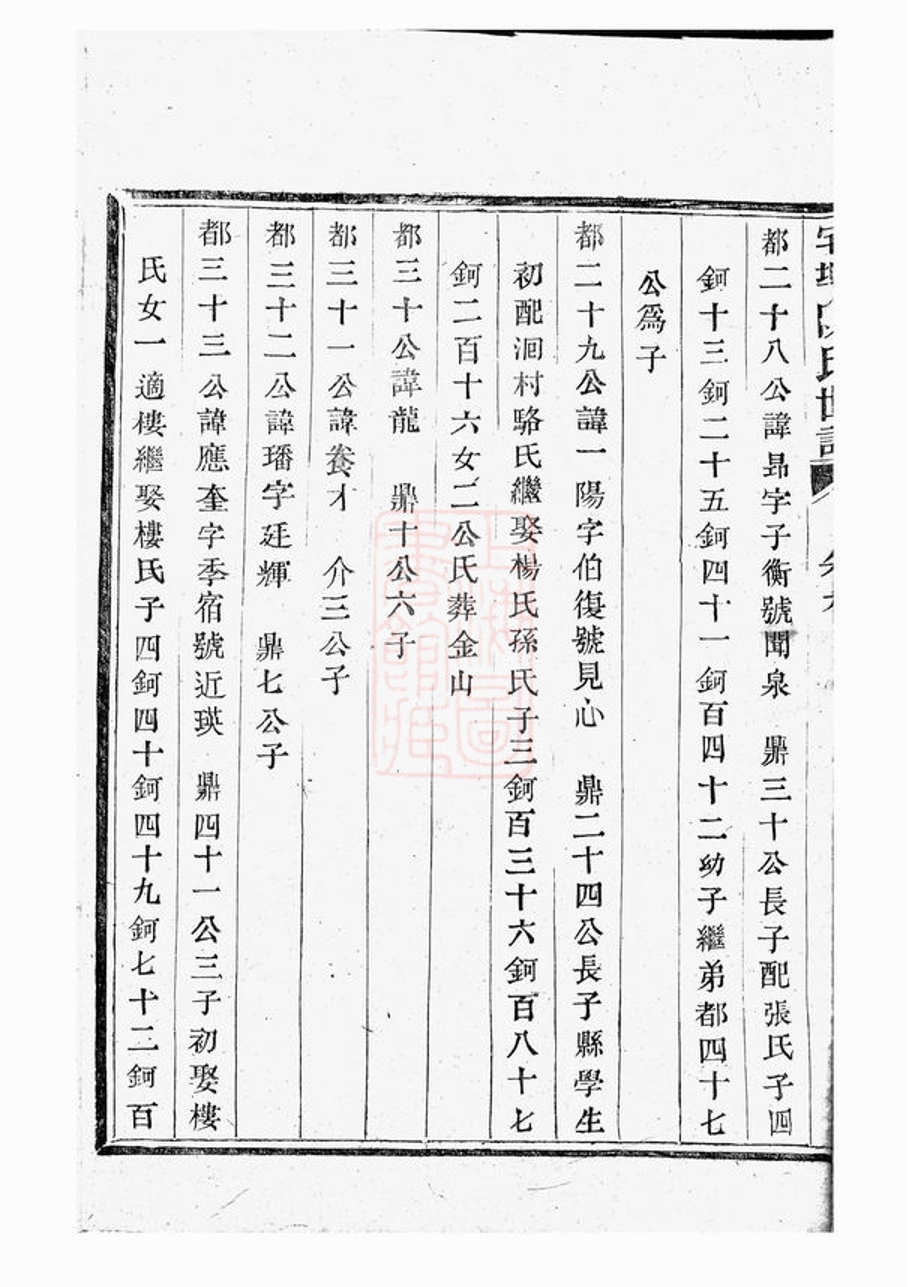 氏世譜
都二十八公諱昴字子衡號聞泉　鼎三十公長子配張氏子四
鈳十三鈳二十五鈳四十一鈳百四十二幼子繼弟都四十七
公爲子
都二十九公諱一陽字伯復號見心　鼎二十四公長子縣學生
初配洄村駱氏繼娶楊氏孫氏子三鈳百三十六鈳百八十七
鈳二百十六女二公氏葬金山
都三十公諱龍　鼎十公六子
都三十一公諱養才　介三公子
都三十二公諱璠字廷輝　鼎七公子
都三十三公諱應奎字季宿號近瑛　鼎四十一公三子初娶樓
氏女一適樓繼娶樓氏子四鈳四十鈳四十九鈳七十二鈳百